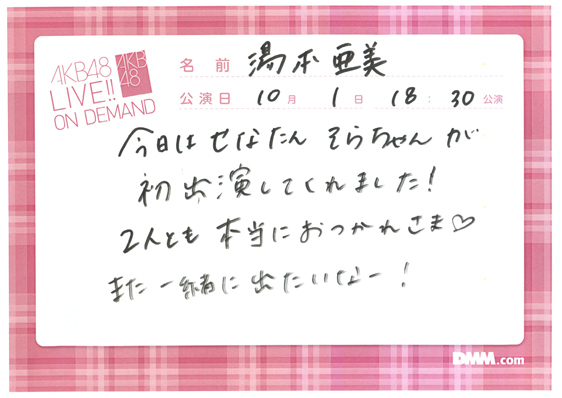 AKB48
LIVE!!
ON DEMAND
AKB
48
名前 湯本亜美
公演日 10月 1日 18:30公演
今日はせなたん そらちゃんが
初出演してくれました!
2人とも本当におつかれさま♡
また一緒に出たいなー!
DMM.com